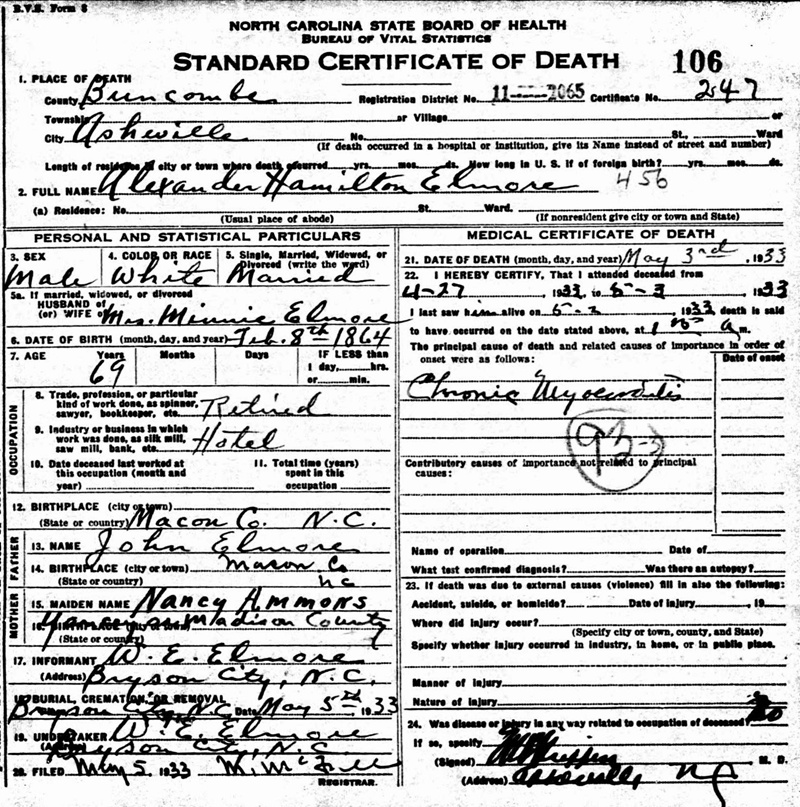 B.V.S. Form 8
NORTH CAROLINA STATE BOARD OF HEALTH
BUREAU OF VITAL STATISTICS
STANDARD CERTIFICATE OF DEATH 106
1. PLACE OF DEATH
County Buncombe Registration District No. 11-2065 Certificate No. 247
Township or Village or
City Asheville No. St., Ward
(If death occurred in a hospital or institution, give its Name instead of street and number)
Length of residence in city or town where death occurred yrs. mos. ds. How long in U. S. if of foreign birth? yrs. mos. ds.
2. FULL NAME Alexander Hamilton Elmore 456
(a) Residence: No. St. Ward.
(Usual place of abode) (If nonresident give city or town and State)
PERSONAL AND STATISTICAL PARTICULARS
3. SEX 4. COLOR OR RACE 5. Single, Married, Widowed, or
Divorced (write the word)
Male White Married
5a. If married, widowed, or divorced
HUSBAND of
(or) WIFE of Mrs. Minnie Elmore
6. DATE OF BIRTH (month, day, and year) Feb. 8th 1864
7. AGE Years Months Days IF LESS than
1 day, hrs.
69 or min.
OCCUPATION
8. Trade, profession, or particular
kind of work done, as spinner,
sawyer, bookkeeper, etc. Retired
9. Industry or business in which
work was done, as silk mill,
saw mill, bank, etc. Hotel
10. Date deceased last worked at
this occupation (month and
year)
11. Total time (years)
spent in this
occupation
12. BIRTHPLACE (city or town)
(State or country) Macon Co. N.C.
FATHER
13. NAME John Elmore
14. BIRTHPLACE (city or town) Macon Co
(State or country) NC
MOTHER
15. MAIDEN NAME Nancy Ammons
16. Yancey or Madison County
(State or country)
17. INFORMANT W. E. Elmore
(Address) Bryson City, N.C.
18. BURIAL, CREMATION, OR REMOVAL
Bryson City, N.C. Date May 5th 1933
19. UNDERTAKER W. E. Elmore
(Address) Bryson City, N.C.
20. FILED May 5, 1933
REGISTRAR.
MEDICAL CERTIFICATE OF DEATH
21. DATE OF DEATH (month, day, and year) May 3rd, 1933
22. I HEREBY CERTIFY, That I attended deceased from
4-27, 1933, to 5-3, 1933
I last saw him alive on 5-3, 1933 death is said
to have occurred on the date stated above, at a m.
The principal cause of death and related causes of importance in order of
onset were as follows: Date of onset
Chronic Myocarditis
93-3
Contributory causes of importance not related to principal
causes:
Name of operation Date of
What test confirmed diagnosis? Was there an autopsy?
23. If death was due to external causes (violence) fill in also the following:
Accident, suicide, or homicide? Date of injury , 19
Where did injury occur?
(Specify city or town, county, and State)
Specify whether injury occurred in industry, in home, or in public place.
Manner of Injury
Nature of Injury
24. Was disease or injury in any way related to occupation of deceased? No
If so, specify
(Signed) M. D.
(Address) Asheville, NC